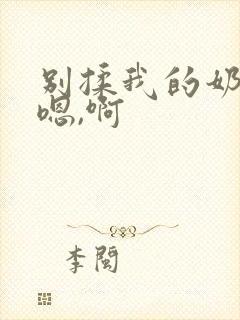 别揉我的奶
嗯,啊
李闽